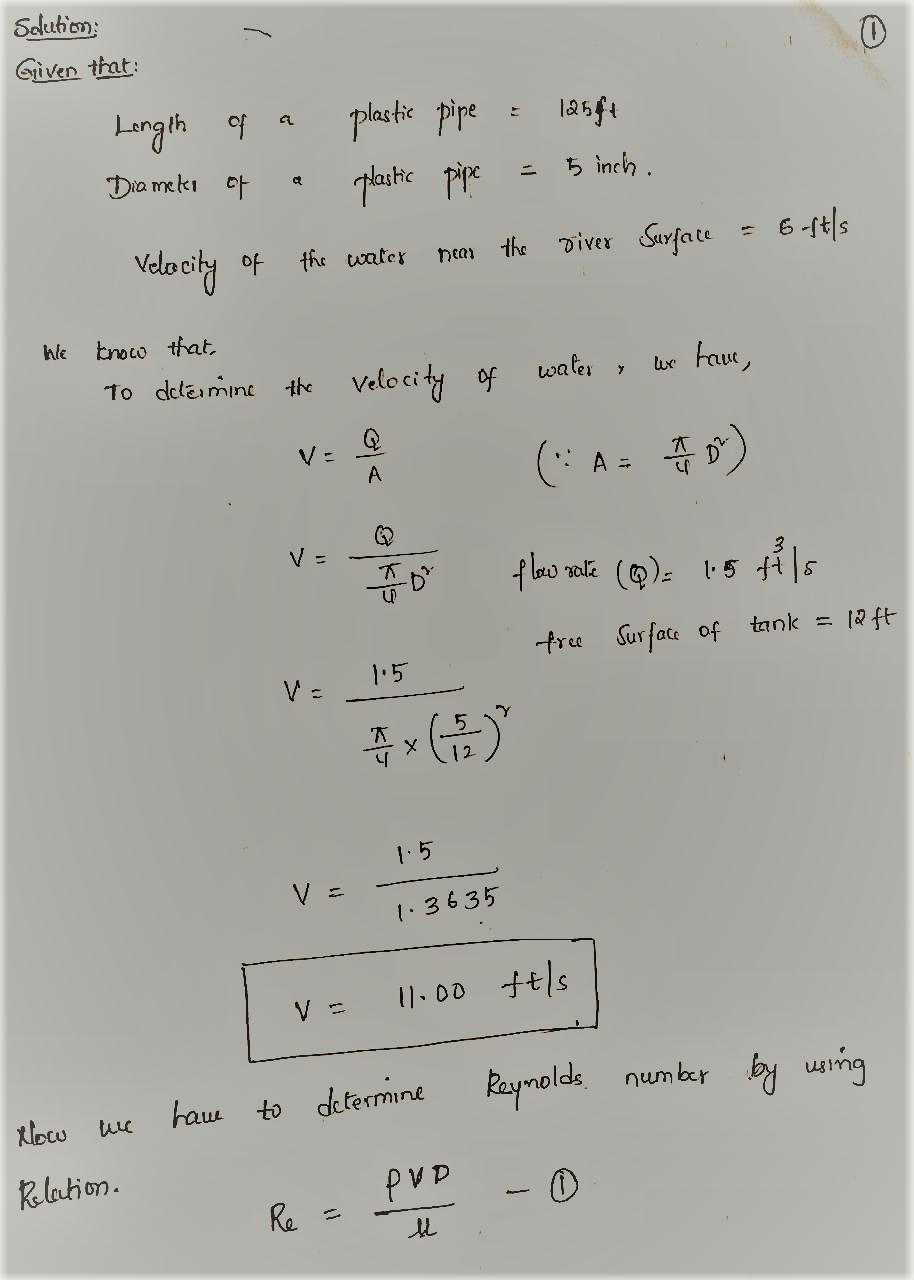 Solution: ①
Given that:
Length of a plastic pipe = 125ft
Diameter of a plastic pipe = 5 inch.
Velocity of the water near the river Surface = 6 ft/s
We know that,
To determine the velocity of water, we have,
V = Q/A (∵ A = π/4 D²)
V = Q / (π/4 D²) flow rate (Q) = 1.5 ft³/s
free Surface of tank = 12 ft
V = 1.5 / (π/4 × (5/12)²)
V = 1.5 / 1.3635
V = 11.00 ft/s
Now we have to determine Reynolds number by using
Relation.
Re = ρVD/μ - ①